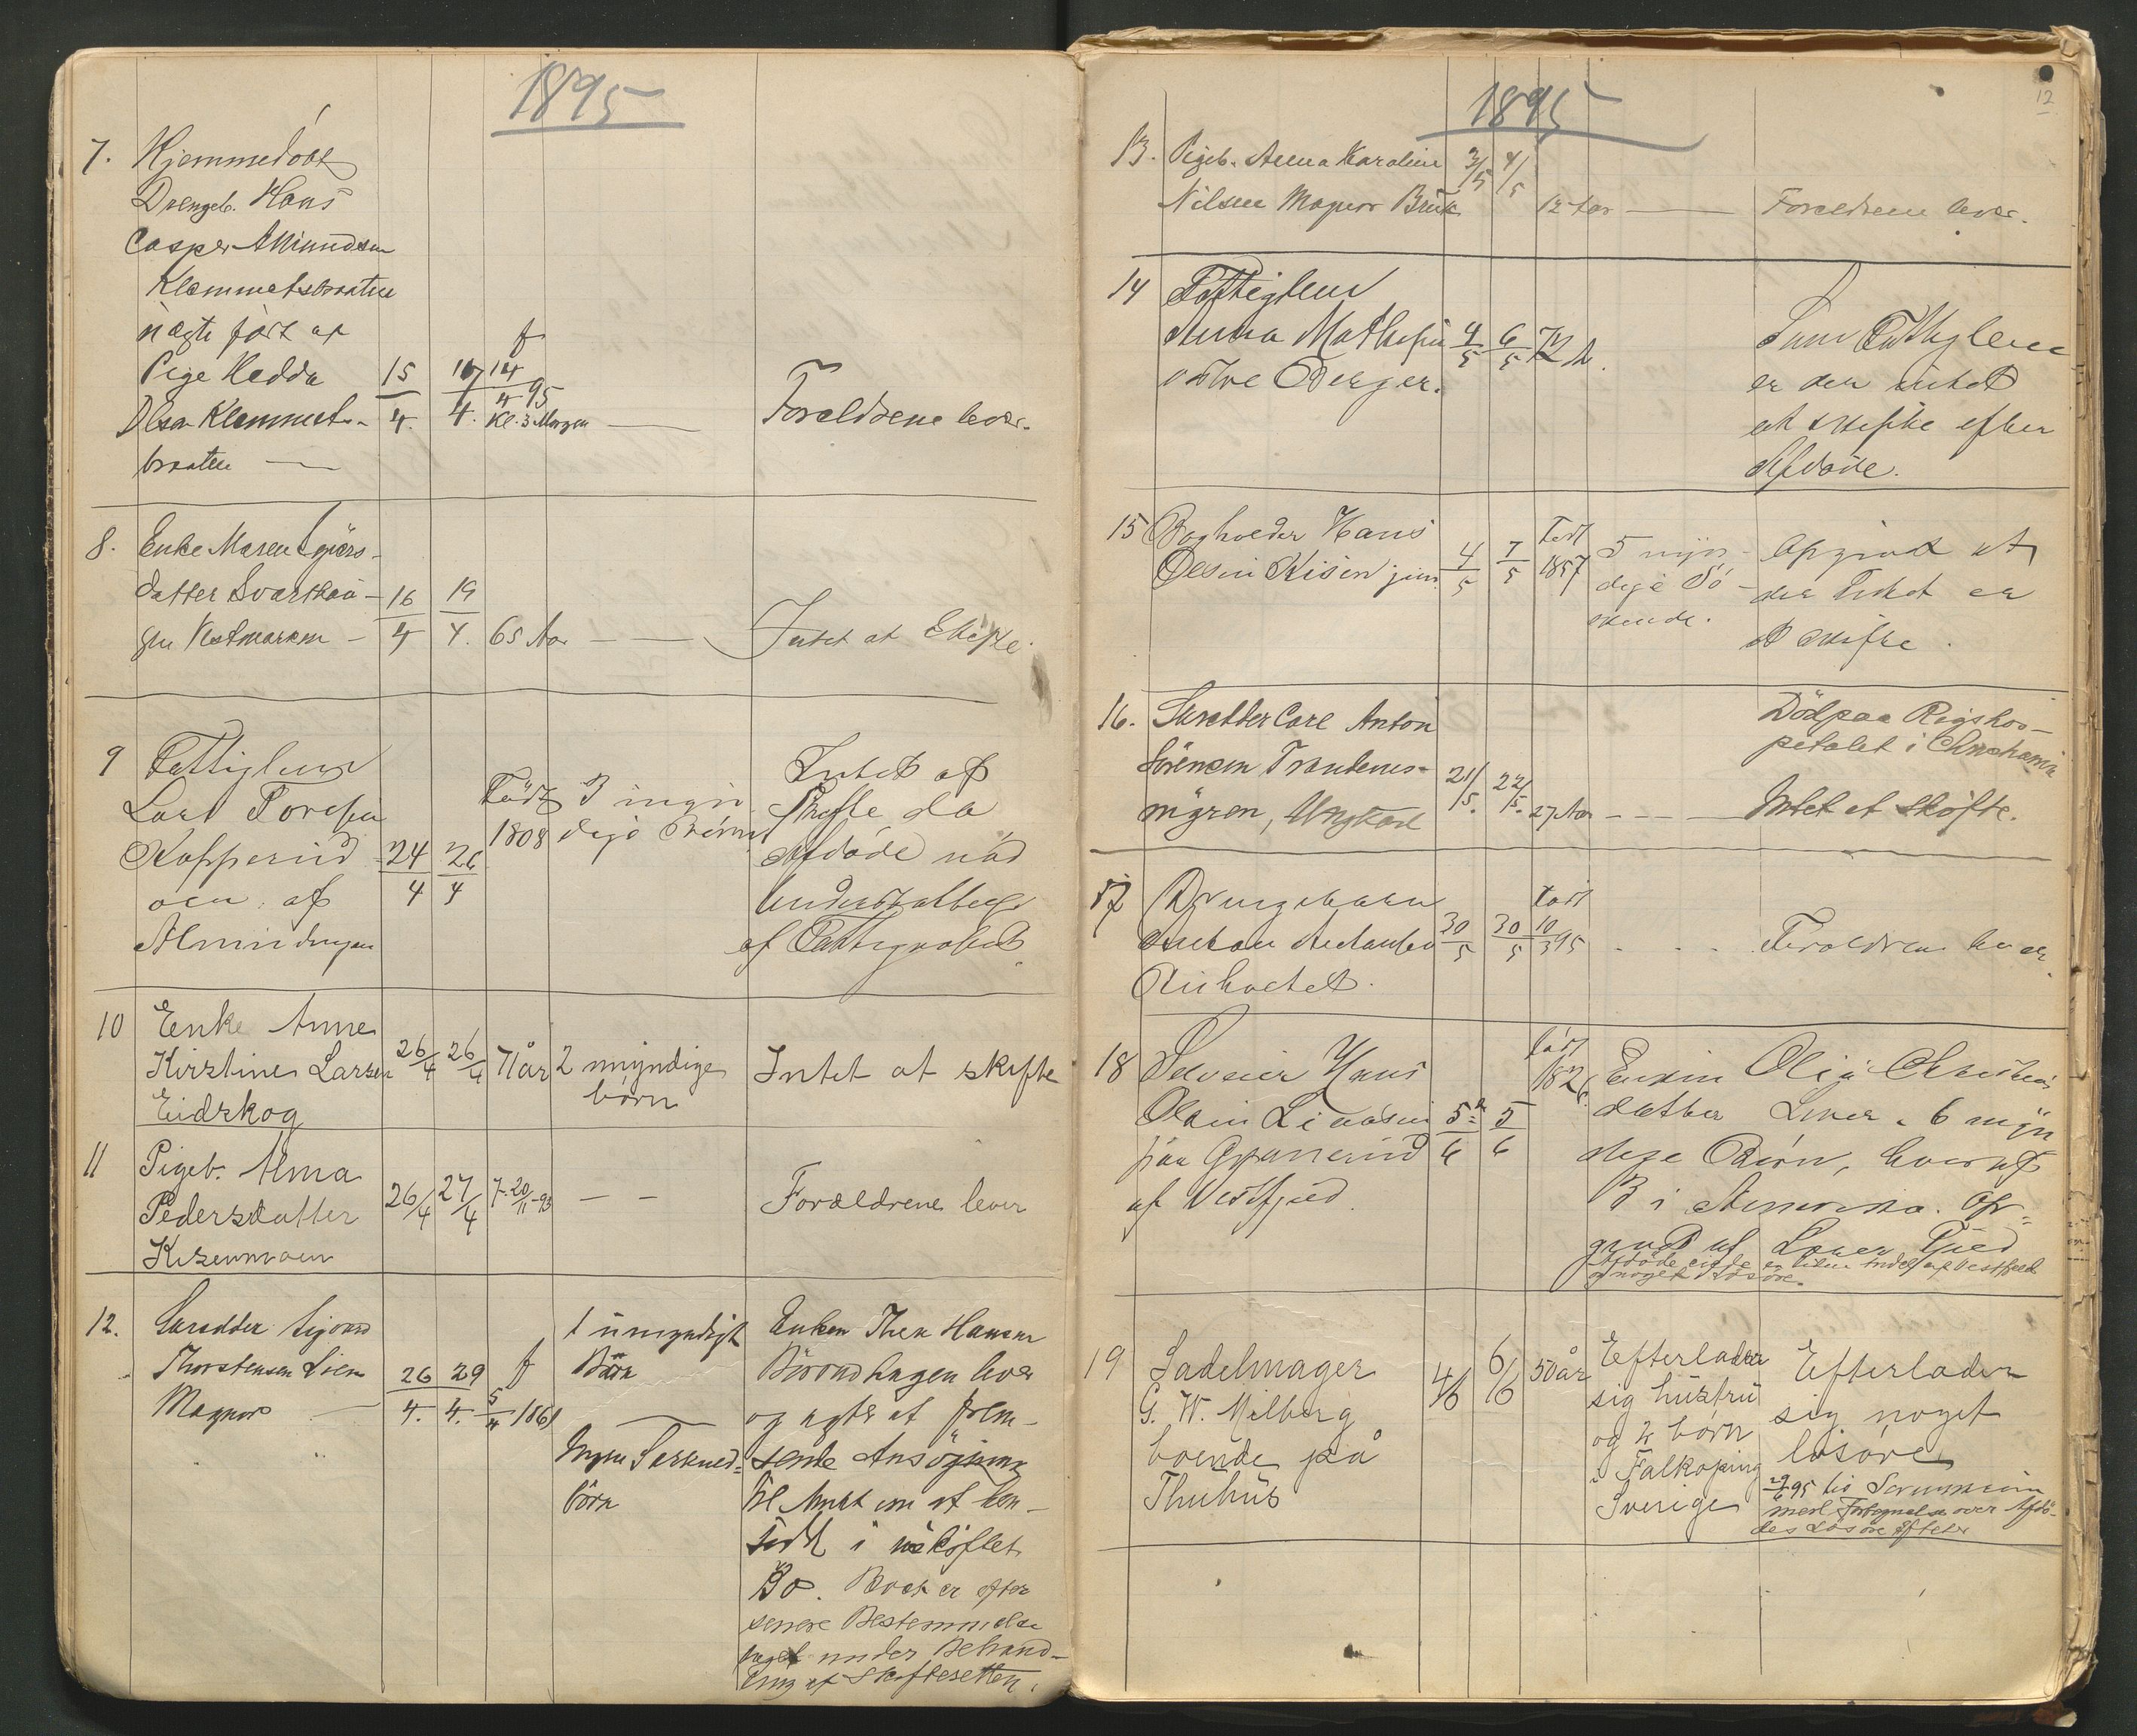 1895
7. Hjemmedöbt
Drengeb. Hans
Casper Amundsen
Klemmetsbraaten
uægte født af
Pige Hedda
Olsen Klemmets-
braaten
15/4. 17/4. f 14/4 95
Kl. 3 Morgen
Foreldrene lever.
8. Enke Maren
datter
Vestmarken
16/4 19/4. 65 Aar
Intet at Skifte.
9 Fattiglem
Lars
Kopperud
af
Almindingen
24/4 26/4
Född
1808
3 myn
dige Börn
Intet at
Skifte da
Afdöde nöd
Understöttelse
af Fattigvæsenet.
10 Enke Anne
Kirstine Larsen
Eidskog
26/4 26/4 71 år
2 myndige
börn
Intet at skifte
11 Pigeb. Alma
Pedersdatter
Kisenmoen
26/4 27/4 f. 20/11-93
Forældrene lever
12. Skrædder Sigvard
Thorstensen Lien
Magnor
26/4. 29/4. f 5/4 1861
1 umyndigt
Barn
Ingen Særkuld-
börn
Enken Thea Hansen
lever
og agter at frem-
sende Ansögning
til Amtet om at hen-
sidde i uskiftet
Bo. Boet er efter
senere Bestemmelse
taget under Behand-
ling af Skifteretten.
12
1895
13. Pigeb. Anna Karoline
Nilsen Magnor Bruk
3/5 4/5
12 Aar
Foreldrene lever.
14 Fattiglem
Anna Mathisen
östre Öierger.
4/5 6/5 72 A.
Som Fattiglem
er der intet
at skifte efter
Afdöde.
15 Bogholder Hans
Olsen Kisen jun.
4/5 7/5
Född
1857
5 myn-
dige Sö-
skende.
Opgivet at
der Intet er
at skifte.
16. Skrædder Carl Anton
Sörensen
Ungkarl
21/5. 22/5. 27 Aar
Död paa Rigshos-
pitalet i Christiania
Intet at skifte.
17 Drengebarn
Anton
30/5 30/5
född
10/3 95
Foreldren lever.
18 Selveier Hans
Olsen
fraa
af Vestfjed.
5/6 5/6
född
1826.
Enken Olia Christians
datter Lever. 6 myn
dige Börn, hvoraf
3 i Amerika. Op-
givet af Sted
Afdöde eiede en liten Andel af Vestfjed
og noget Lösöre.
19 Sadelmager
G. W. Milberg
boende på
Thuhus
4/6 6/6 50 år
Efterlader
sig hustru
og 2 börn
i Falköping
Sverige
Efterlader
sig noget
lösöre
95 til Sorenskriveren
med Fortegnelse over Afdö-
des Lösöre Efter